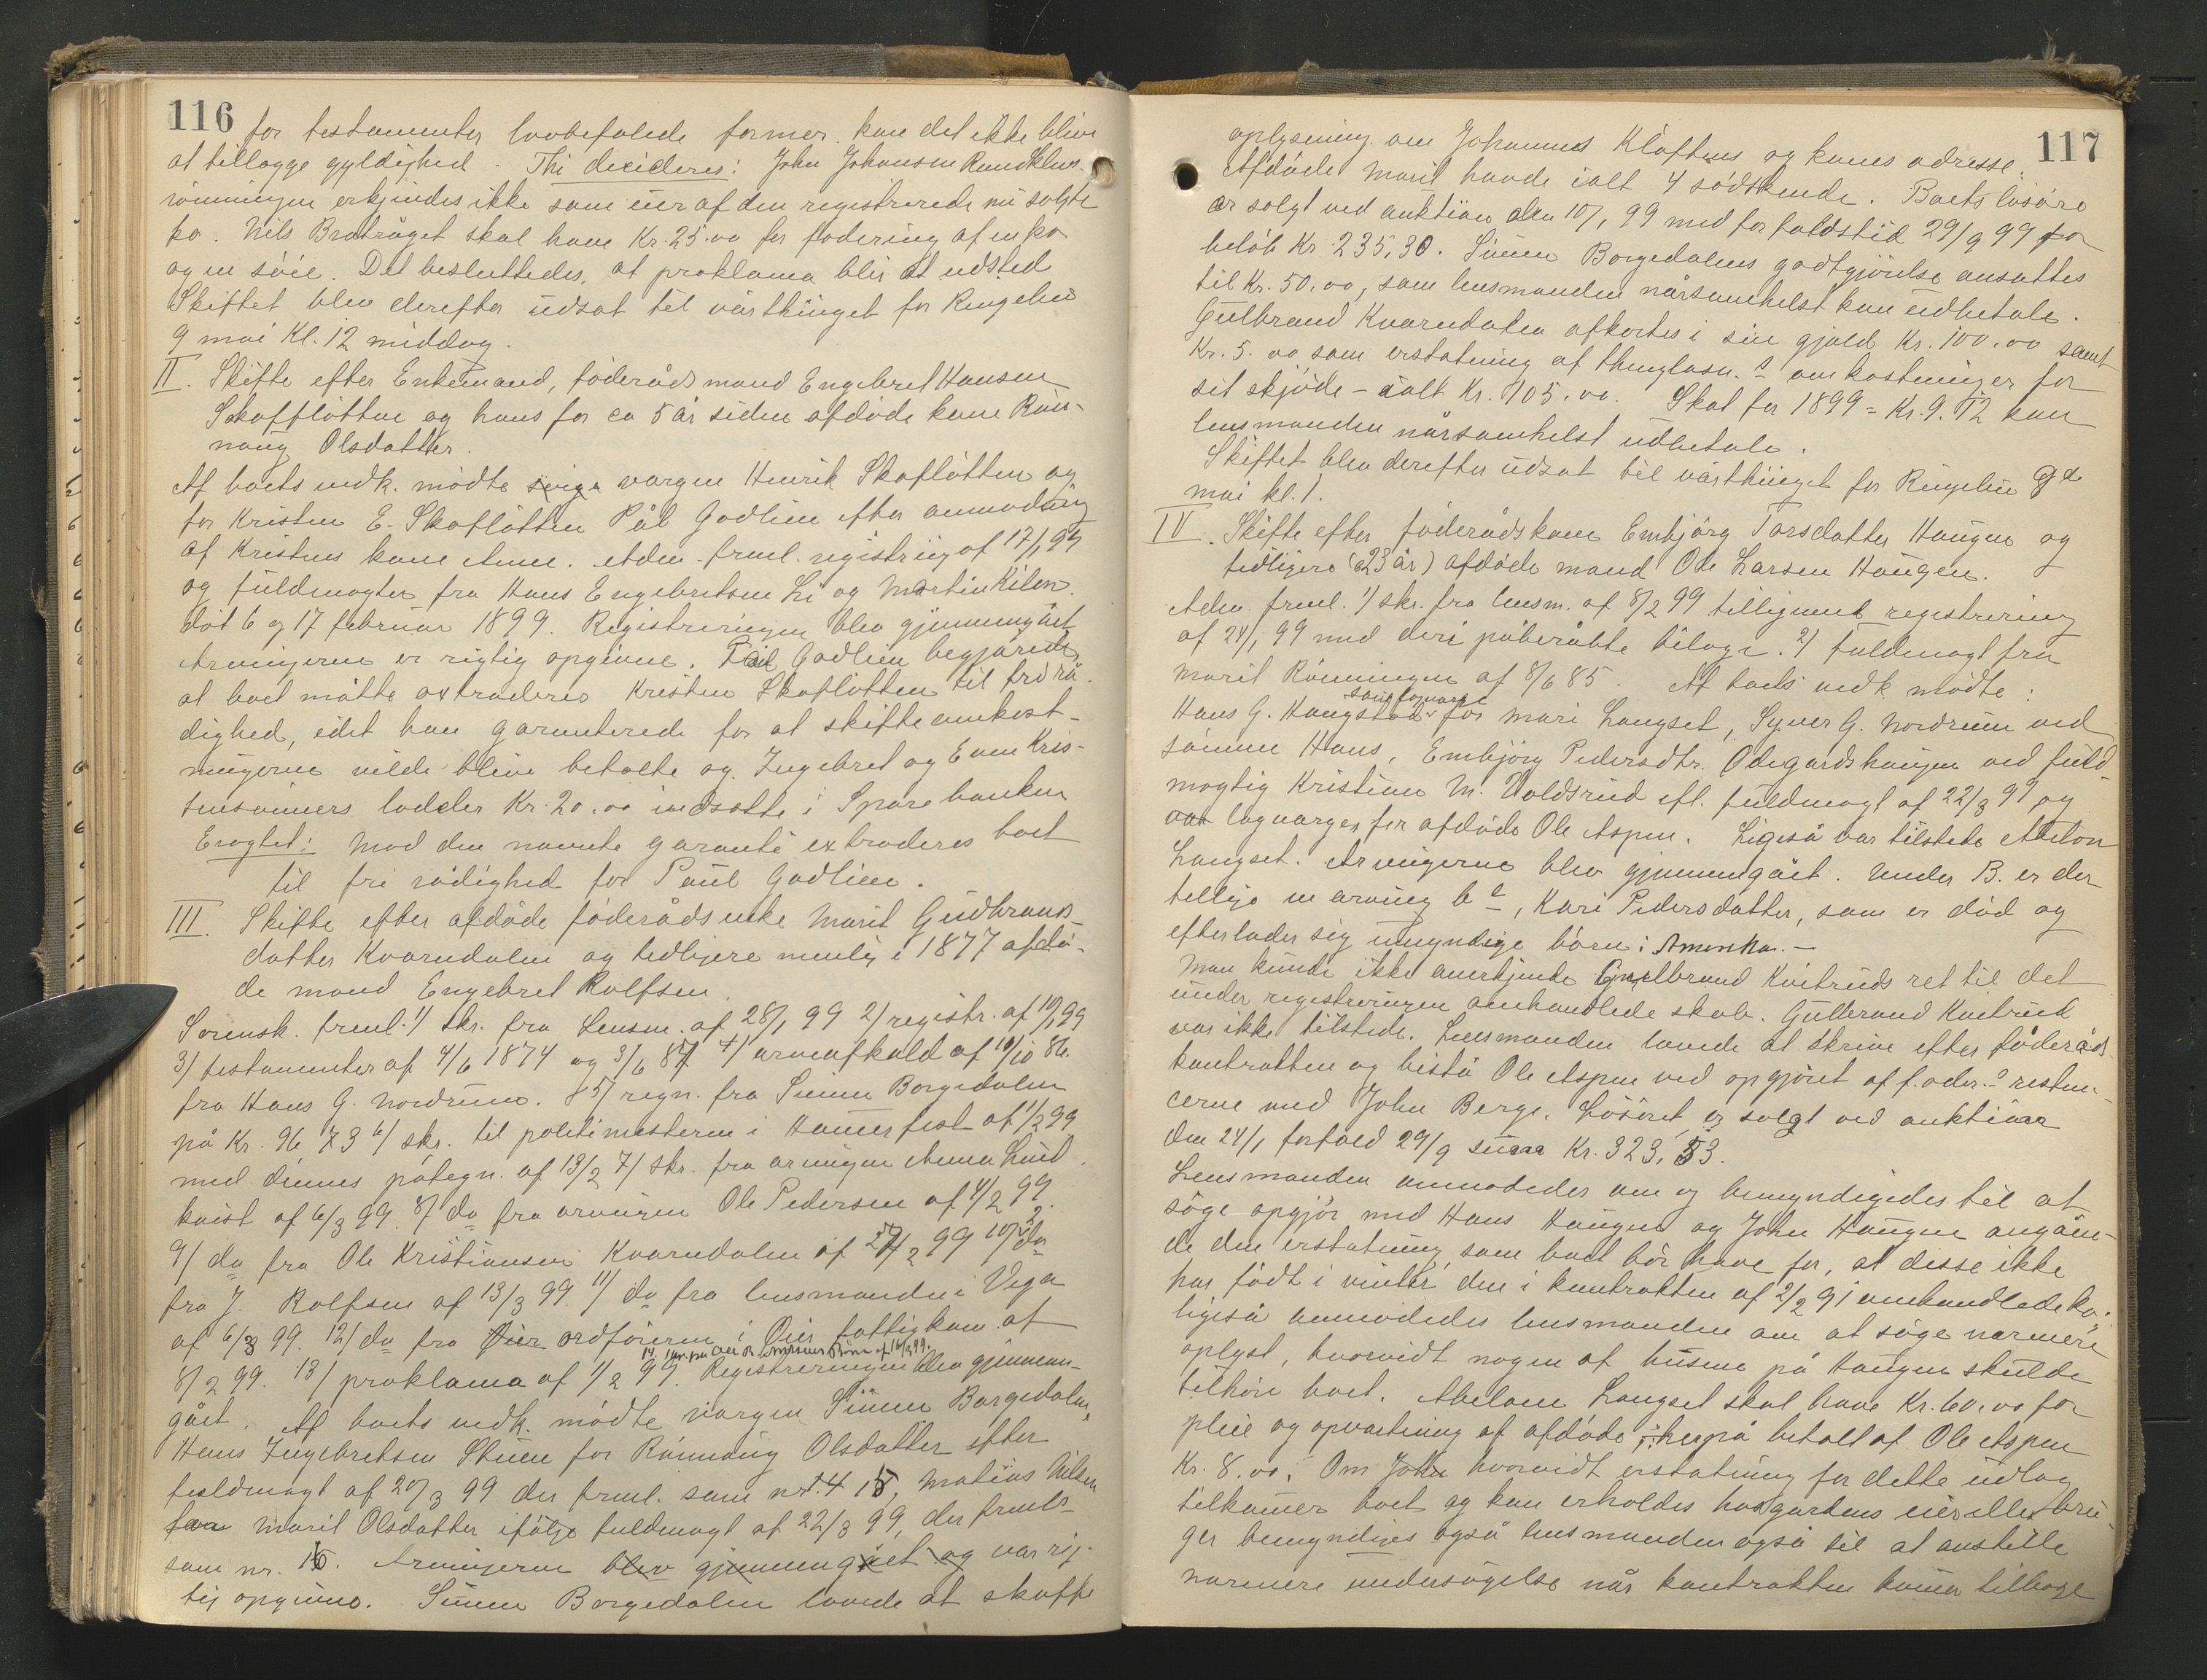 116
for testamenter lovbefalede former kan det ikke blive
at tillægge gyldighed. Thi decideres: John Johansen Rundklev-
rönningen erkjendes ikke som eier af den registrerede nu solgte
ko. Nils Bratråget skal have Kr. 25.00 for fodering af en ko
og en söie. Det besluttedes, at proklama blir at udsted
Skiftet blev derefter udsat til vårthinget for Ringebu
9 mai Kl. 12 middag.
II. Skifte efter Enkemand, föderådsmand Engebret Hansen
Skoflötten og hans for ca 5 år siden afdöde kone Rön-
naug Olsdatter.
Af boets vedk. mödte værgen Henrik Skoflötten og
for Kristen E. Skoflötten Pål Godlien efter anmodning
af Kristens kone Anne. Adm. freml. registrig af 17/1 99
og fuldmagter fra Hans Engebretsen Li og Martin Kilen.
dat 6 og 17 februar 1899. Registreringen blev gjennemgået
Arvingerne er rigtig opgivne. Paul Godlien begjærede,
at boet måtte extraderes Kristen Skoflötten til fri rå-
dighed, idet han garanterede for at skifteomkost-
ningerne vilde blive betalte og Ingebret og Even Kris-
tensönners lodder Kr. 20.00 indsatte i Sparebanken
Eragtet: Mod den nævnte garanti extraderes boet
til fri rådighed for Paul Godlien.
III. Skifte efter afdöde föderådsenke Marit Gudbrands-
datter Kvarndalen og tidligere nemlig i 1877 afdö-
de mand Engebret Rolfsen.
Sorensk. freml. 1/ skr. fra Lensm. af 28/1 99 2/ registr. af 10/1 99
3/ testamenter af 4/6 1874 og 3/6 87 4/ arveafkald af 10/10 86
fra Hans G. Nordrum. 5/ regn. fra Simen Borgedalen
på Kr. 96,73 6/ skr. til politimesteren i Hammerfest af 1/2 99
med dennes påtegn. af 13/2 7/ skr. fra arvingen Anna Lind-
kvist af 6/3 99. 8/ do fra arvingen Ole Pedersen af 4/2 99.
9/ do fra Ole Kristiansen Kvarndalen af 27/2 99 10/ do
fra J. Rolfsen af 13/3 99. 11/ do fra lensmanden i Vega
af 6/3 99. 12/ do fra Öier ordföreren i Öier fattigkom. af
8/2 99. 13/ proklama af 1/2 99. Registreringen blev gjennem-
gået. Af boets vedk. mödte værgen Simen Borgedalen,
Hans Ingebretsen Stuen for Rönnaug Olsdatter efter
fuldmagt af 20/3 99 der freml. som nr. 15, Matias Nilsen
for Marit Olsdatter ifölge fuldmagt af 22/3 99, der freml.
som nr. 16. Arvingerne blev gjennemgået og var rig-
tig opgivne. Simen Borgedalen lovede at skaffe
117
oplysning om Johannes Kløftens og kones adresse.
Afdöde Marit havde ialt 4 södskende. Boets lösöre
er solgt ved auktion den 10/1 99 med forfaldstid 29/9 99 for
belöb Kr. 235,30. Simen Borgedalens godtgjörelse ansattes
til Kr. 50.00, som lensmanden nårsomhelst kan udbetale.
Gulbrand Kvarndalen afkortes i sin gjæld Kr. 100.00 samt
Kr. 5.00 som erstatning af thinglæsn.s omkostninger for
sit skjöde – ialt Kr. 105.00. Skat for 1899 = Kr. 9.12 kan
lensmanden nårsomhelst udbetale.
Skiftet blev derefter udsat til vårthinget for Ringebu 9de
mai kl. 1.
IV. Skifte efter föderådskone Embjörg Torsdatter Haugen og
tidligere (23 år) afdöde mand Ole Larsen Haugen.
Adm. freml. 1/ skr. fra lensm. af 8/2 99 tilligemed registrering
af 24/1 99 med deri påberåbte bilage. 2/ fuldmagt fra
Marit Rönningen af 8/6 85. Af boets vedk. mödte:
Hans G. Haugstad som lagværge for Mari Langset, Syver G. Nordrum ved
sönnen Hans, Embjörg Pedersdtr. Ödegardshaugen ved fuld-
mægtig Kristian M. Voldsrud efl. fuldmagt af 22/3 91 og
lagværgen for afdöde Ole Aspen. Ligeså var tilstede Abelon
Langset. Arvingerne blev gjennemgået. Under B. er der
tillige en arving b e, Kari Pedersdatter, som er död og
efterlader sig umyndige börn i Amerika. –
Man kunde ikke anerkjende Gulbrand Kvitruds ret til det
under registreringen omhandlede skab. Gulbrand Kvitrud
var ikke tilstede. Lensmanden lovede at skrive efter föderåds-
kontrakten og bistå Ole Aspen ved opgjöret af f.oder.s restan-
cerne med John Berge. Lösöret er solgt ved auktion
den 24/1 forfald 29/9 sum Kr. 323,53.
Lensmanden anmodedes om og bemyndigedes til at
söge opgjör med Hans Haugen og John Haugen angåen-
de den erstatning, som boet bör have for, at disse ikke
har födt i vinter den i kontrakten af 2/2 91 omhandlede ko.
ligeså anmodedes lensmanden om at söge nærmere
oplyst, hvorvidt nogen af husene på Haugen skulde
tilhöre boet. Abelone Langset skal have Kr. 60.00 for
pleie og opvartning af afdöde; herpå betalt af Ole Aspen
Kr. 8.00. Om John hvorvidt erstatning for dette udlæg
tilkommer boet og kan erholdes hos gardens eier eller bru-
ger bemyndiges også lensmanden også til at anstille
nærmere undersögelse når kontrakten kommer tilbage